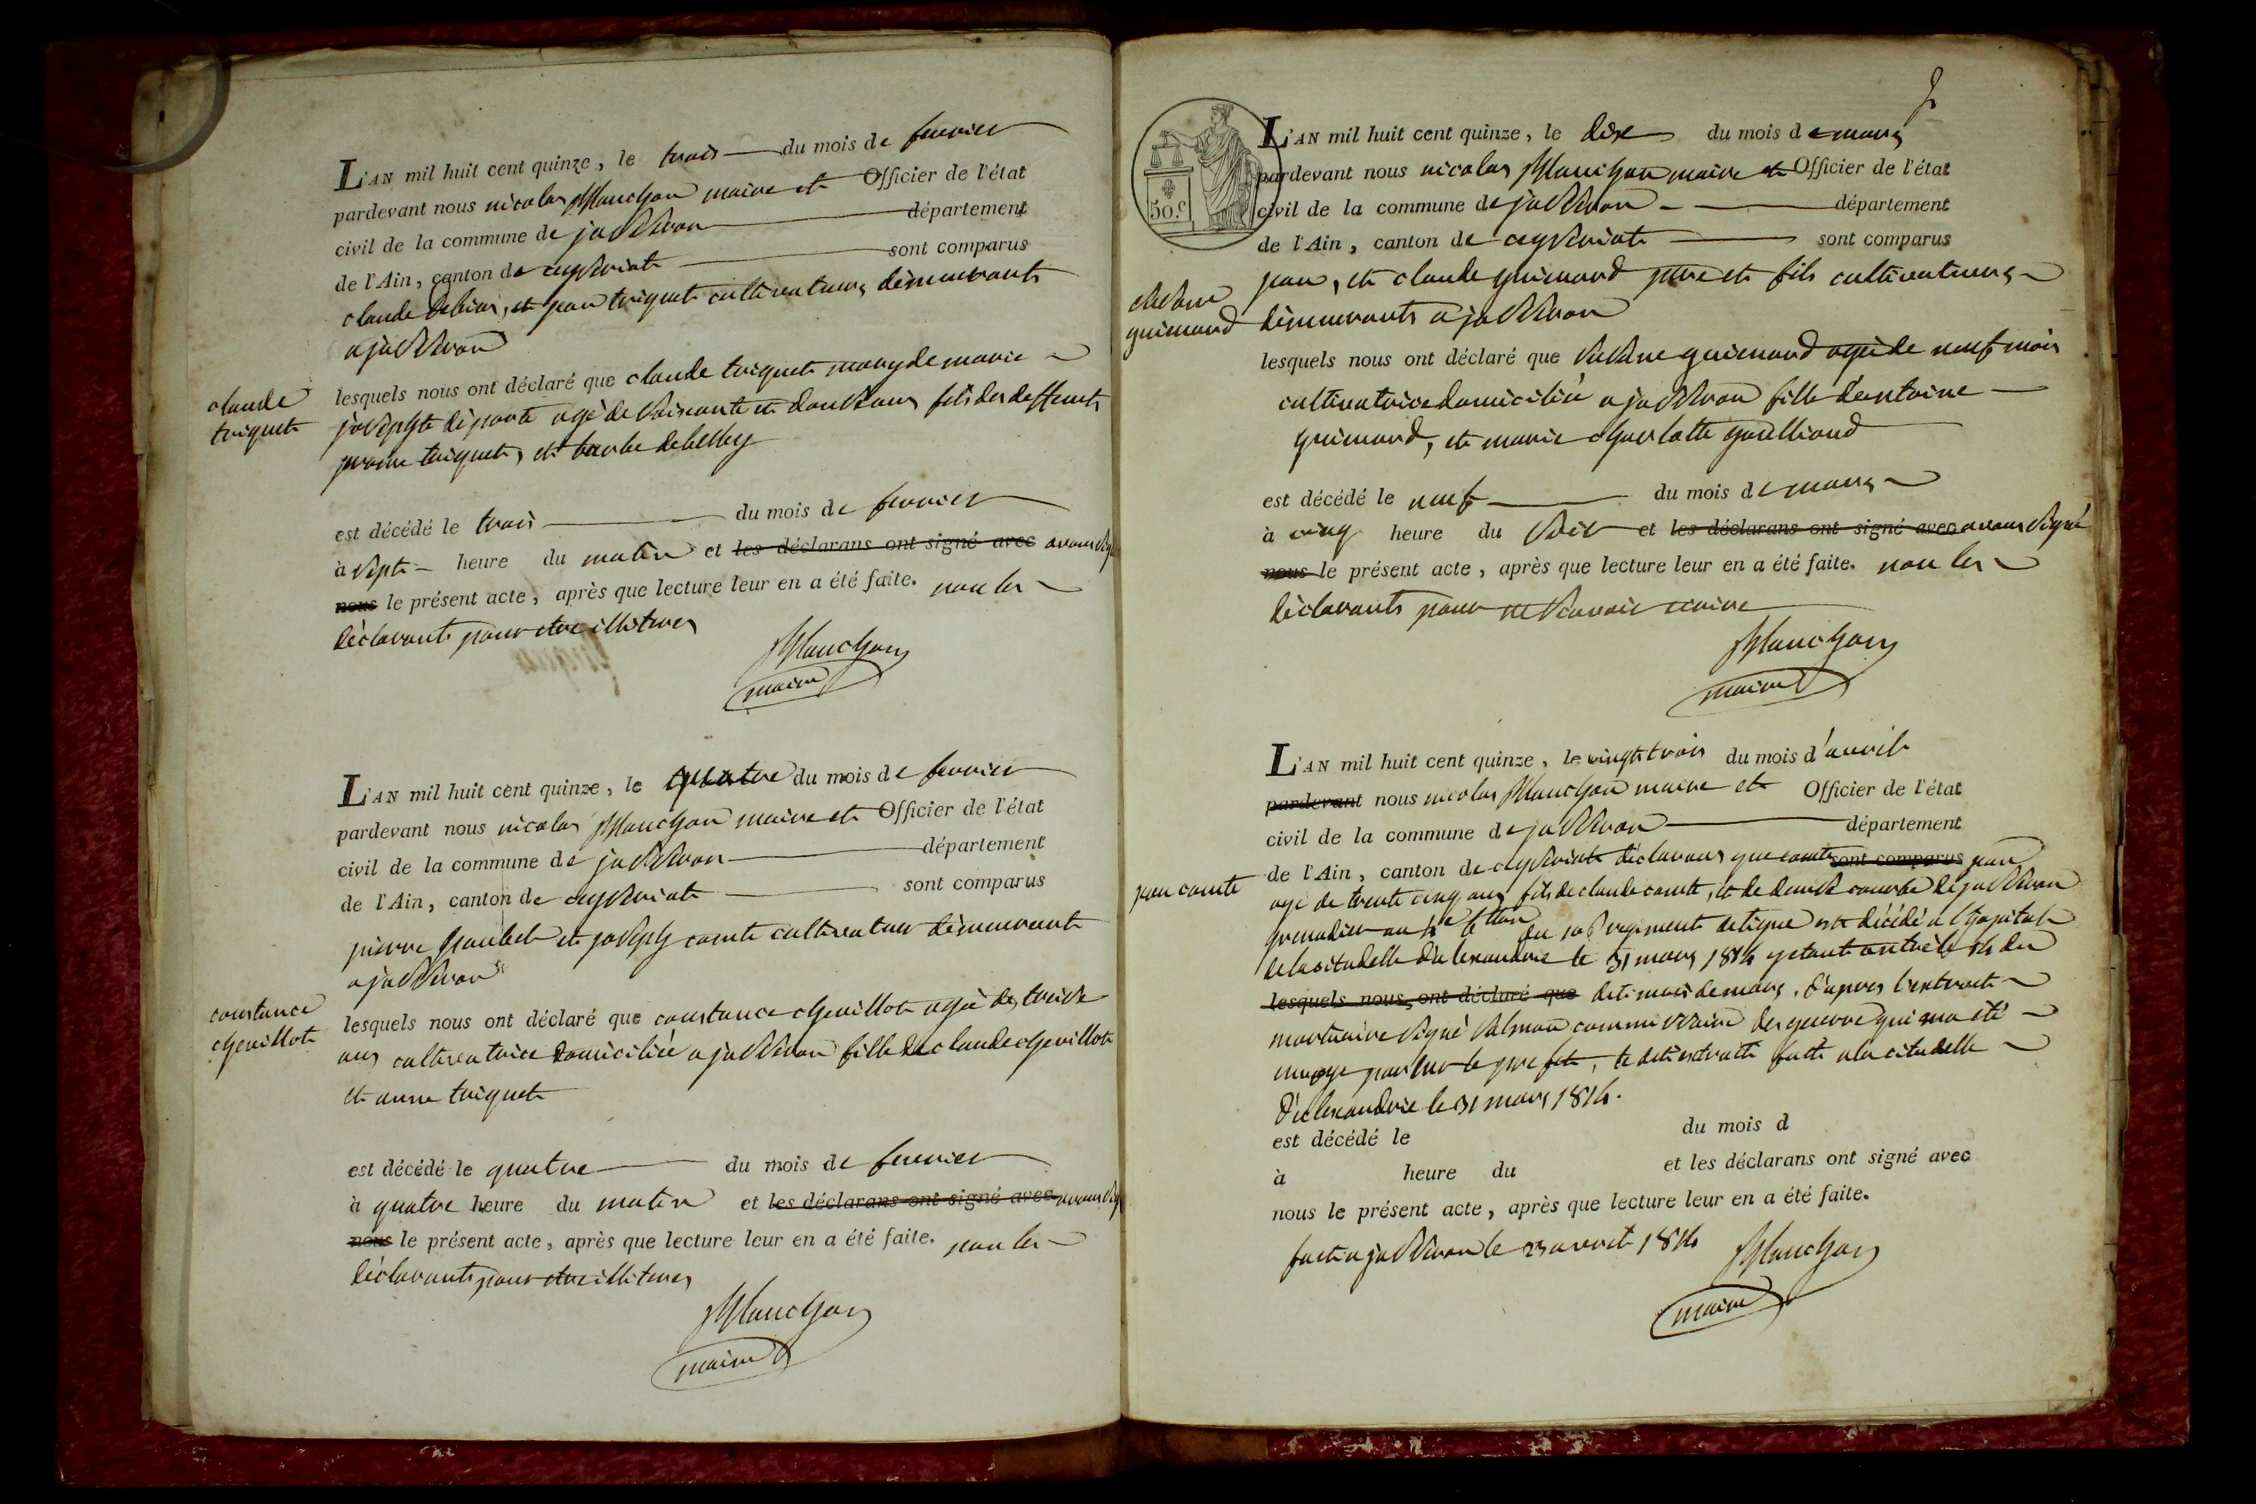 L'AN mil huit cent quinze, le trois du mois de fevrier
pardevant nous nicolas Manchon maire et Officier de l'état
civil de la commune de jasseron département
de l'Ain, canton de ceyseriat sont comparus
claude debias, et jean triquet cultivateurs démeurants
a jasseron
claude
triquet
lesquels nous ont déclaré que claude triquet mary de marie
josephte déporte agé de soixante et douze ans fils des deffunts
triquet, et barbe debelley
est décédé le trois du mois de fevrier
à sept heure du matin et les déclarans ont signé avec avons signé
nous le présent acte, après que lecture leur en a été faite. non les
déclarants pour etre illitures
Manchon
maire
L'AN mil huit cent quinze, le quatre du mois de fevrier
pardevant nous nicolas Manchon maire et Officier de l'état
civil de la commune de jasseron département
de l'Ain, canton de ceyseriat sont comparus
pierre et joseph comte cultivateur démeurant
a jasseron
constance
chevillot
lesquels nous ont déclaré que constance chevillot agée de treize
ans cultivatrice domiciliée a jasseron fille de claude chevillot
et anne triquet
est décédé le quatre du mois de fevrier
à quatre heure du matin et les déclarans ont signé avec avons sig
nous le présent acte, après que lecture leur en a été faite. non les
déclarants pour etre illitures
Manchon
maire
2
50.c
L'AN mil huit cent quinze, le dix du mois de mars
pardevant nous nicolas Manchon maire et Officier de l'état
civil de la commune de jasseron département
de l'Ain, canton de ceyseriat sont comparus
jean, et claude guimand père et fils cultivateurs
démeurants a jasseron
guimand
lesquels nous ont déclaré que guimand agée de neuf mois
cultivatrice domiciliée a jasseron fille d'antoine
guimand, et marie charlotte
est décédé le neuf du mois de mars
à cinq heure du soir et les déclarans ont signé avec avons signé
nous le présent acte, après que lecture leur en a été faite. non les
déclarants pour ne scavoir
Manchon
maire
L'AN mil huit cent quinze, le vingt trois du mois d'avril
pardevant nous nicolas Manchon maire et Officier de l'état
civil de la commune de jasseron département
de l'Ain, canton de ceyseriat déclarons que comte sont comparus jean
jean comte
agé de trente cinq ans fils de claude comte, et de denise de jasseron
grenadier au 4e btton du regiment de ligne est décédé a l'hopital
de la citadelle d'alexandrie le 31 mars 1814 y etant entré le 14 du
lesquels nous ont déclaré que dit mois de mars, d'apres l'extrait
mortuaire signé commissaire des guerre qui ma été
envoye par mr le prefet, le dit extrait fait a la citadelle
d'alexandrie le 31 mars 1814.
est décédé le du mois d
à heure du et les déclarans ont signé avec
nous le présent acte, après que lecture leur en a été faite.
fait a jasseron le 23 avril 1814
Manchon
maire